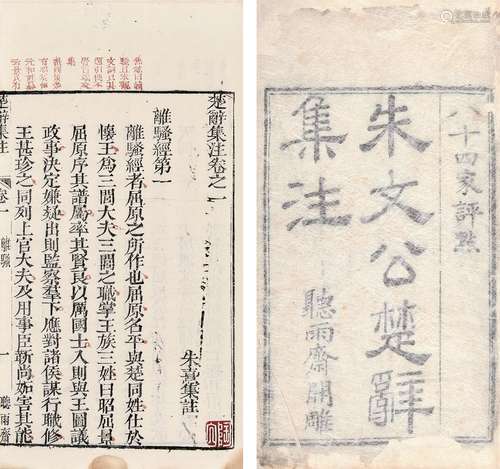 八十四家評點
朱文公楚辭
集注
聽雨齋開雕
楚辭集注卷之一
朱熹集註
離騷經第一
離騷經者屈原之所作也屈原名平與楚同姓仕於
懷王爲三閭大夫三閭之職掌王族三姓曰昭屈景
屈原序其譜屬率其賢良以厲國士入則與王圖議
政事決定嫌疑出則監察羣下應對諸侯謀行職修
王甚珍之同列上官大夫及用事臣靳尚妬害其能
楚辭集注 卷一 離騷 一 聽雨齋